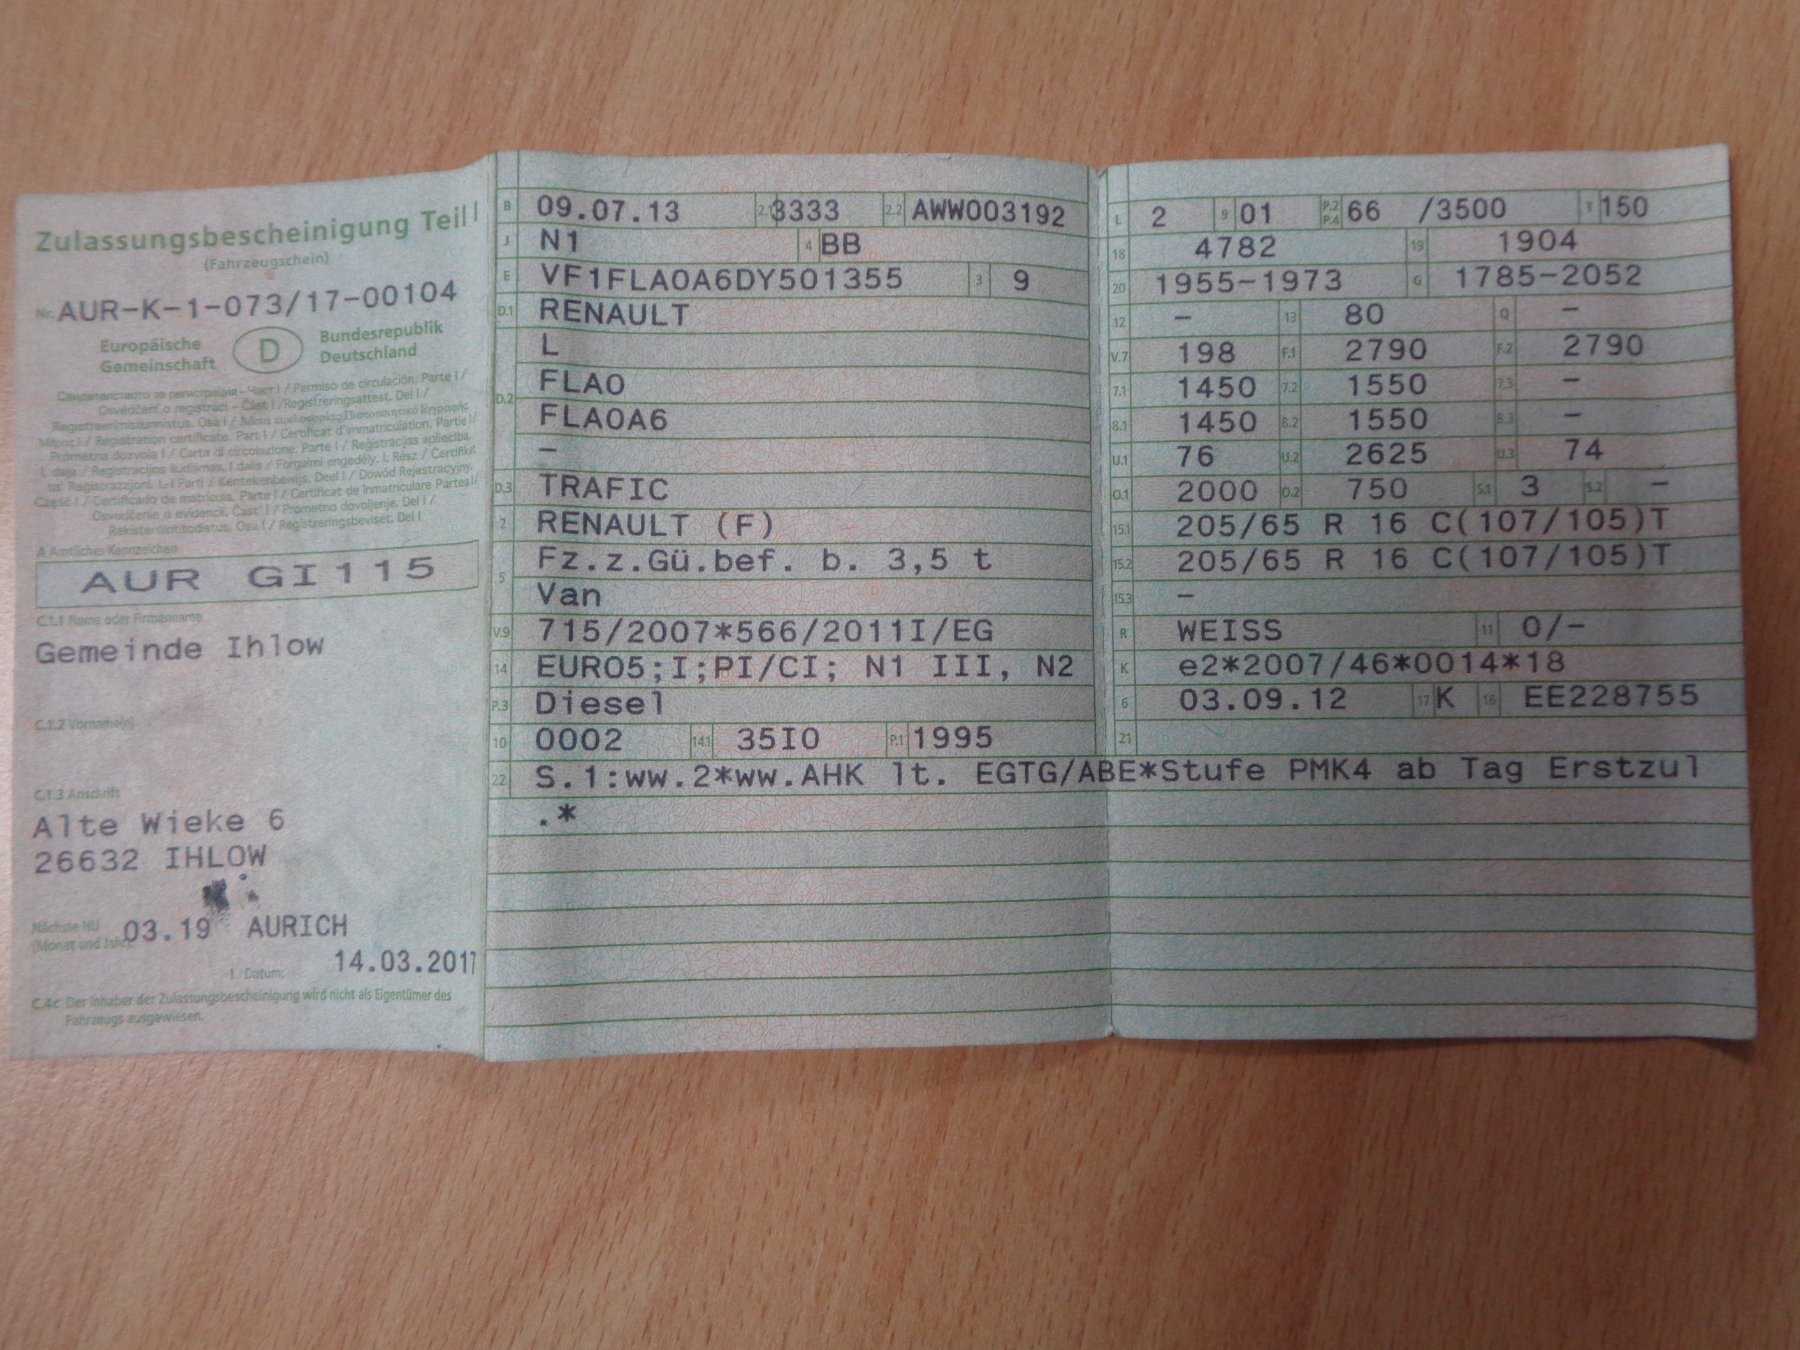 Zulassungsbescheinigung Teil I
(Fahrzeugschein)
Nr. AUR-K-1-073/17-00104
Europäische Gemeinschaft D Bundesrepublik Deutschland
Osvědčení o registraci - Část I / Registreringsattest. Del I /
Registration certificate. Part I / Certificat d'immatriculation. Partie I /
A Amtliches Kennzeichen
AUR GI115
C.1.1 Name oder Firmenname
Gemeinde Ihlow
C.1.2 Vorname(n)
C.1.3 Anschrift
Alte Wieke 6
26632 IHLOW
Nächste HU
(Monat und Jahr) 03.19 AURICH
I Datum: 14.03.2017
C.4c Der Inhaber der Zulassungsbescheinigung wird nicht als Eigentümer des
Fahrzeugs ausgewiesen.
B 09.07.13 2.1 3333 2.2 AWW003192
J N1 4 BB
E VF1FLA0A6DY501355 3 9
D.1 RENAULT
L
D.2 FLA0
FLA0A6
-
D.3 TRAFIC
2 RENAULT (F)
5 Fz.z.Gü.bef. b. 3,5 t
Van
V.9 715/2007*566/2011I/EG
14 EURO5;I;PI/CI; N1 III, N2
P.3 Diesel
10 0002 14.1 35I0 P.1 1995
22 S.1:ww.2*ww.AHK lt. EGTG/ABE*Stufe PMK4 ab Tag Erstzul
.*
L 2 9 01 P.2 P.4 66 /3500 T 150
18 4782 19 1904
20 1955-1973 G 1785-2052
12 - 13 80 Q -
V.7 198 F.1 2790 F.2 2790
7.1 1450 7.2 1550 7.3 -
8.1 1450 8.2 1550 8.3 -
U.1 76 U.2 2625 U.3 74
O.1 2000 O.2 750 S.1 3 S.2 -
15.1 205/65 R 16 C(107/105)T
15.2 205/65 R 16 C(107/105)T
15.3 -
R WEISS 11 0/-
K e2*2007/46*0014*18
6 03.09.12 17 K 16 EE228755
21